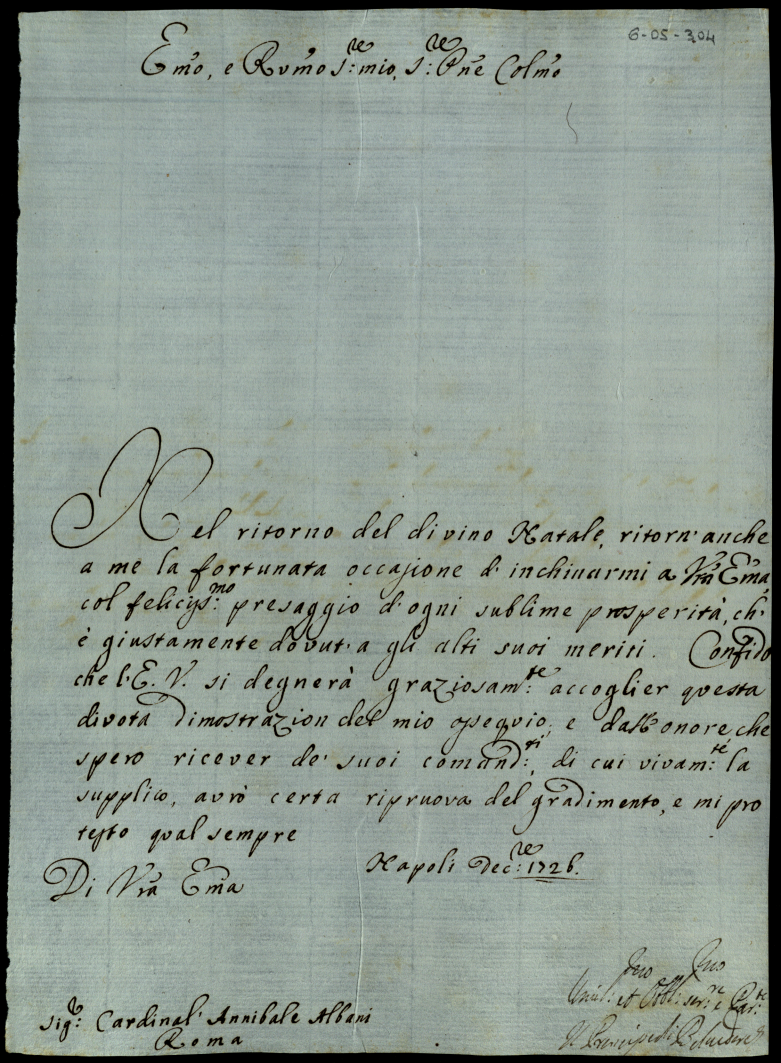 6-05-304
Emo, e Rvmo S:re mio, S:re Pne Colmo
Nel ritorno del divino Natale, ritorn' anche
a me la fortunata occasione d' inchinarmi a Vra Ema,
col felicys:mo presaggio d' ogni sublime prosperità, ch'
è giustamente dovut' a gli alti suoi meriti. Confido
che l' E. V. si degnerà graziosam:te accoglier questa
divota dimostrazion del mio ossequio; e dall' onore, che
spero ricever de' suoi comand:ti, di cui vivam:te la
supplico, avrò certa ripruova del gradimento, e mi pro
testo qual sempre
Napoli Dec:re 1726.
Di Vra Ema
Umil: et Obbl: ser:re e Par:te
Il Principe di Belvedere
Sig:r Cardinal' Annibale Albani
Roma